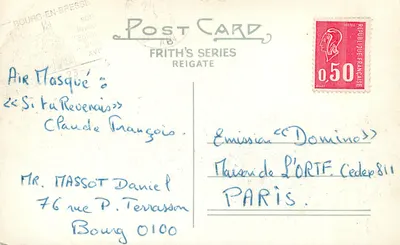 BOURG-EN-BRESSE
POST CARD
FRITH'S SERIES
REIGATE
REPUBLIQUE FRANCAISE
0.50
Air Masqué :
<<Si tu Revenais>>
Claude François.
Mr. MASSOT Daniel
76 rue P. Terrasson
Bourg 0100
Emission <<Domino>>
Maison de L'ORTF Cedex 811
PARIS.